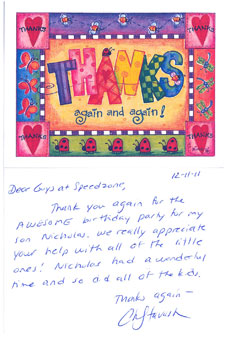 THANKS THANKS
THANKS
again and again!
THANKS THANKS
12-11-11
Dear Guys at Speedzone,
Thank you again for the
AWESOME birthday party for my
son Nicholas. We really appreciate
your help with all of the little
ones! Nicholas had a wonderful
time and so did all of the kids.
Thanks again-